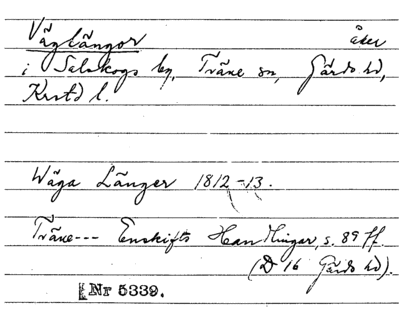 Väglängor åker
i Salskogs by, Träne sn, Gärds hd,
Krstd l.
Wäga Länger 1812-13.
Träne--- Enskifts Handlingar, s. 89 ff.
(D 16 Gärds hd).
Nr 5339.